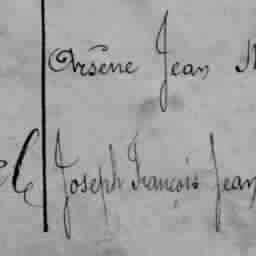 Arsène Jean
Joseph François Jean